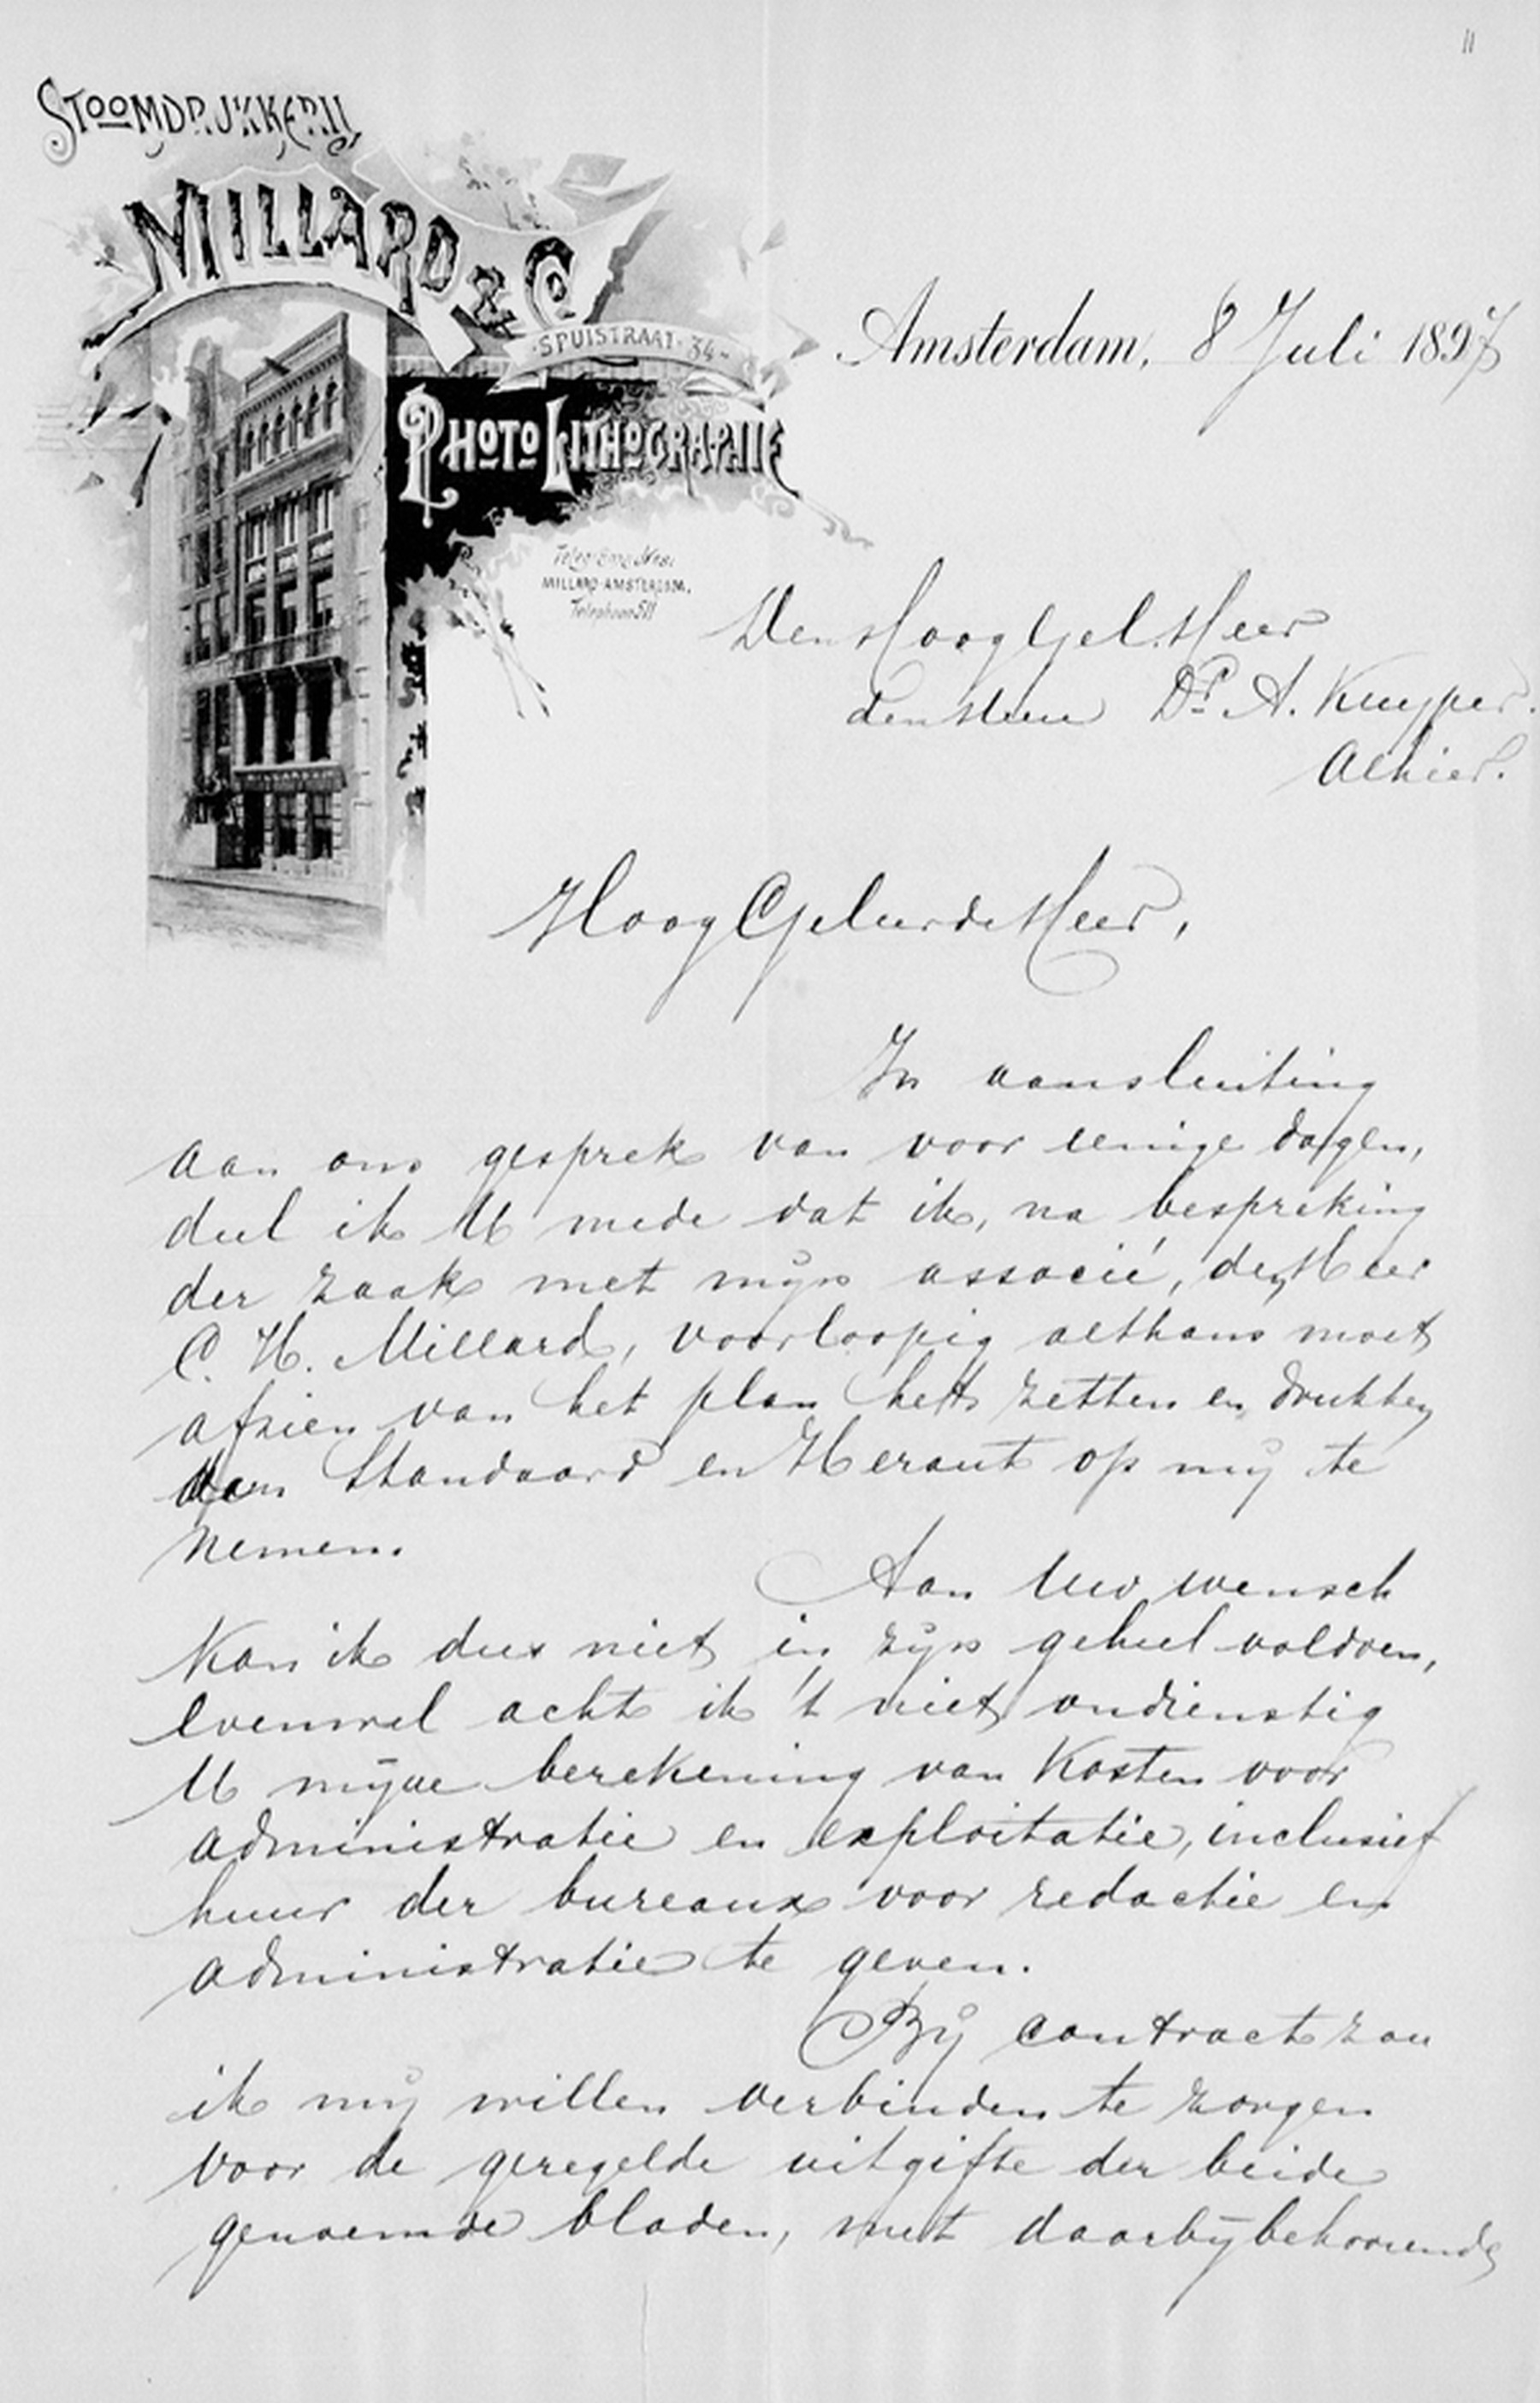 11
STOOMDRUKKERIJ
MILLARD & Co
SPUISTRAAT 34
PHOTO LITHOGRAPHIE
MILLARD-AMSTERDAM.
Telephoon 511
Amsterdam, 8 Juli 1897
Den Hoog Gel. Heer
den Heer Dr. A. Kuyper.
Alhier.
Hoog Geleerde Heer,
In aansluiting
aan ons gesprek van voor eenige dagen,
deel ik U mede dat ik, na bespreking
der zaak met mijn associé, den Heer
C. H. Millard, voorloopig althans moet
afzien van het plan het zetten en drukken
van Standaard en Heraut op mij te
nemen.
Aan Uw wensch
kan ik dus niet in zijn geheel voldoen,
evenwel acht ik 't niet ondienstig
U mijne berekening van kosten voor
administratie en exploitatie, inclusief
huur der bureaux voor redactie en
administratie te geven.
Bij contract zou
ik mij willen verbinden te zorgen
voor de geregelde uitgifte der beide
genoemde bladen, met daarbijbehoorende